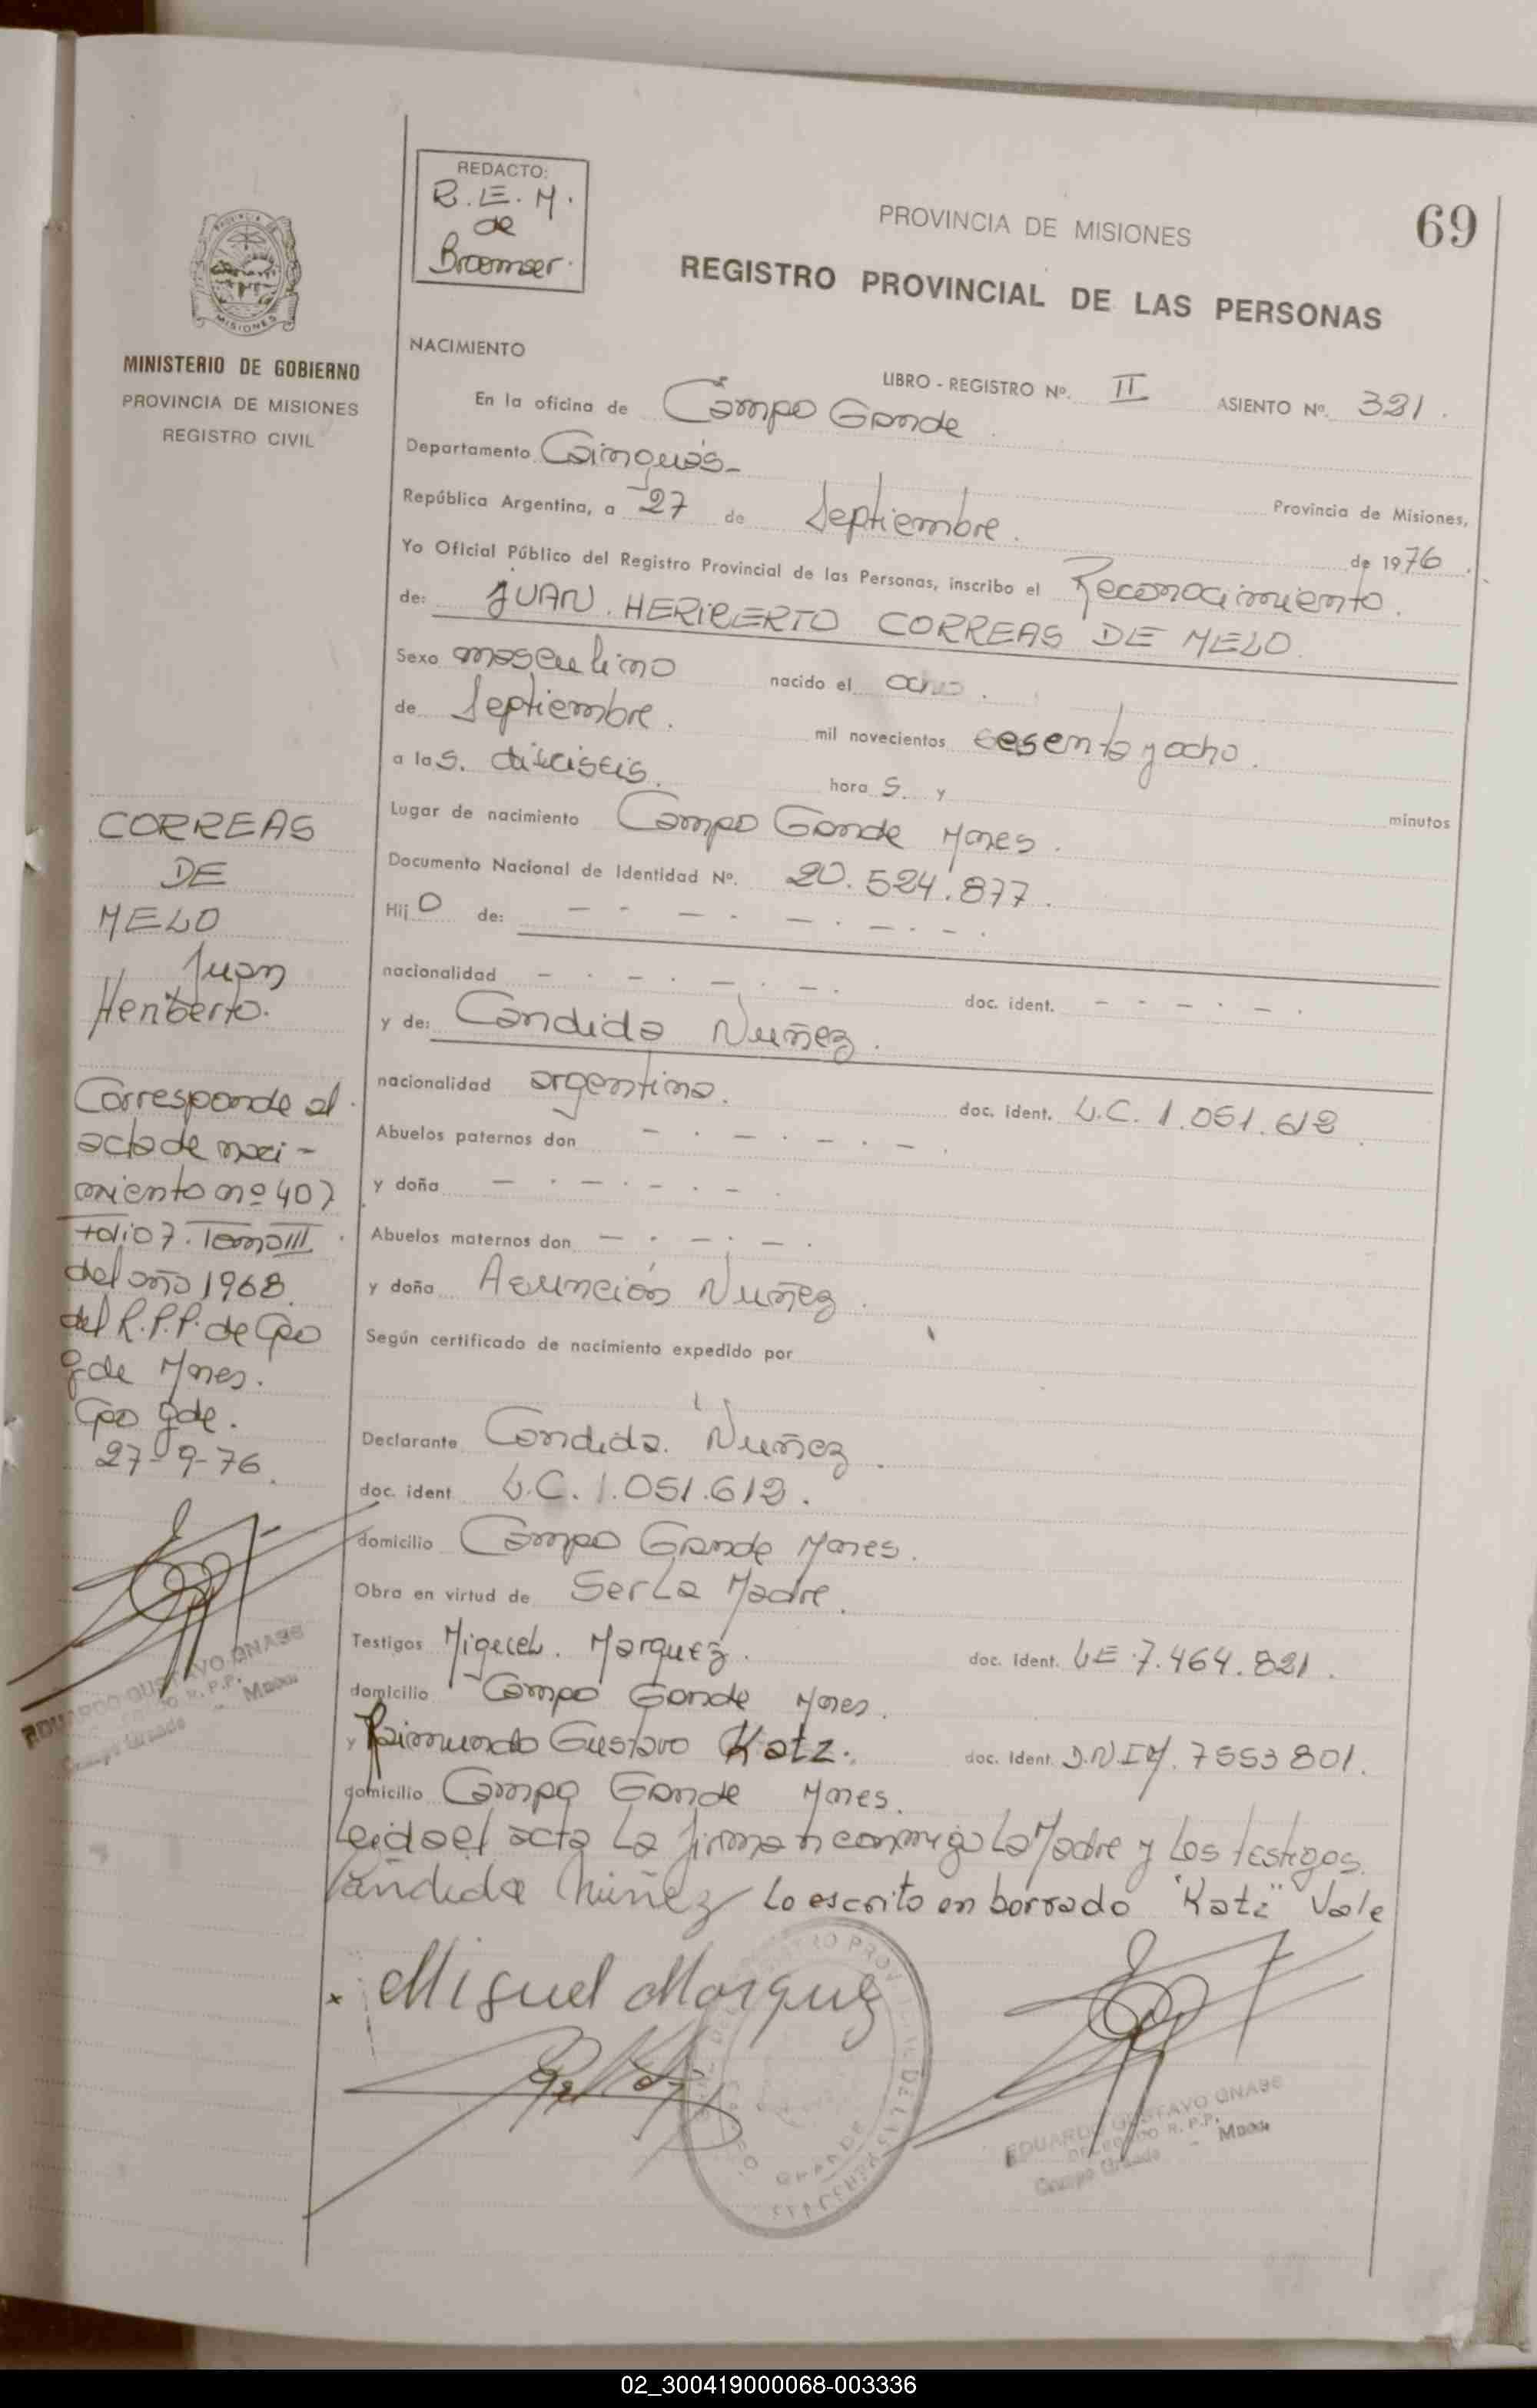 REDACTO:
R.E.M.
de
Broemser.
PROVINCIA DE MISIONES
69
REGISTRO PROVINCIAL DE LAS PERSONAS
MISIONES
MINISTERIO DE GOBIERNO
PROVINCIA DE MISIONES
REGISTRO CIVIL
NACIMIENTO
LIBRO - REGISTRO Nº. II ASIENTO Nº. 321.
En la oficina de Campo Grande.
Departamento Cainguás- Provincia de Misiones,
República Argentina, a 27 de Septiembre. de 1976.
Yo Oficial Público del Registro Provincial de las Personas, inscribo el Reconocimiento.
de: JUAN HERIBERTO CORREAS DE MELO.
Sexo masculino nacido el ocho.
de Septiembre. mil novecientos sesenta y ocho.
a las. dieciseis. hora s. y minutos
Lugar de nacimiento Campo Grande Mnes.
Documento Nacional de Identidad Nº. 20.524.877.
Hijo de: - - - - . - . - .
nacionalidad - . - . - . - . doc. ident. - - - . - .
y de: Candida Nuñez.
nacionalidad argentina. doc. ident. L.C. 1.051.612.
Abuelos paternos don - . - . - . - .
y doña - . - . - . - .
Abuelos maternos don - . - . - .
y doña Asunción Nuñez.
Según certificado de nacimiento expedido por
Declarante Candida. Nuñez.
doc. ident. L.C. 1.051.612.
domicilio Campo Grande Mnes.
Obra en virtud de Ser La Madre.
Testigos Miguel. Marquez. doc. ident. LE 7.464.821.
domicilio Campo Grande Mnes.
y Raimundo Gustavo Katz. doc. ident. D.N.I.M. 7553801.
domicilio Campo Grande Mnes.
Leida el acta La firman conmigo La Madre y Los testigos.
Candida Nuñez Lo escrito en borrado "Katz" Vale
x Miguel Marquez
EDUARDO GUSTAVO GNASS
DELEGADO R.P.P.
Campo Grande - Mnes
CORREAS
DE
MELO
Juan
Heriberto.
Corresponde al
acta de naci-
miento nº 407
folio 7. Tomo III.
del año 1968.
del R.P.P. de Cpo
gde Mnes.
Cpo gde.
27-9-76.
EDUARDO GUSTAVO GNASS
R.P.P.
Campo Grande - Mnes
02_300419000068-003336